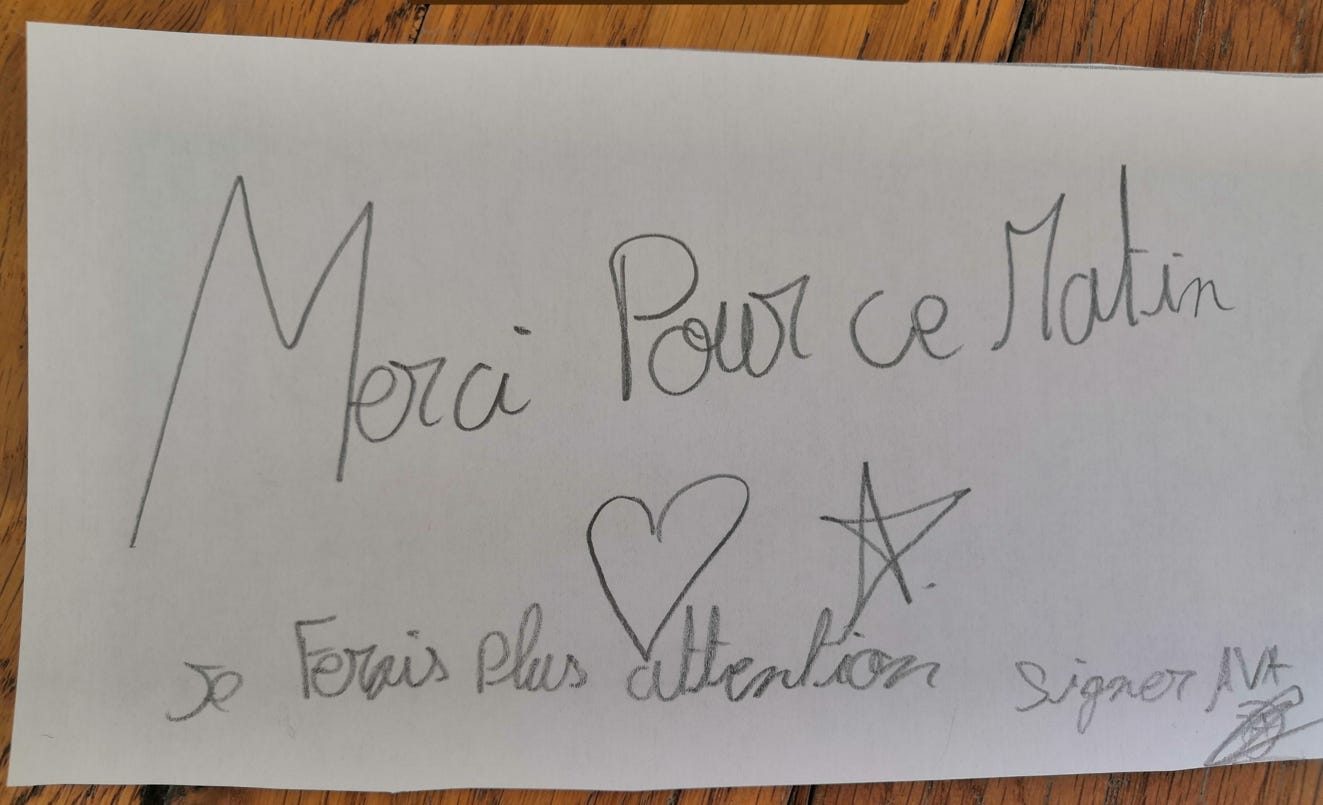 Merci Pour ce Matin
Je Ferais plus attention signer AVA